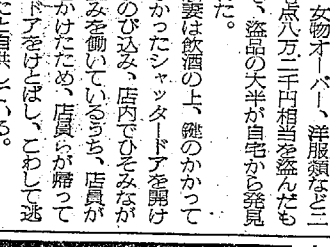 女物オーバー、洋服類など二
点八万二千円相当を盗んだも
、盗品の大半が自宅から発見
た。
妻は飲酒の上、鍵のかかって
かったシャッタードアを開け
のび込み、店内でひそみなが
みを働いているうち、店員が
かけたため、店員らが帰って
ドアをけとばし、こわして逃
たと自供している。